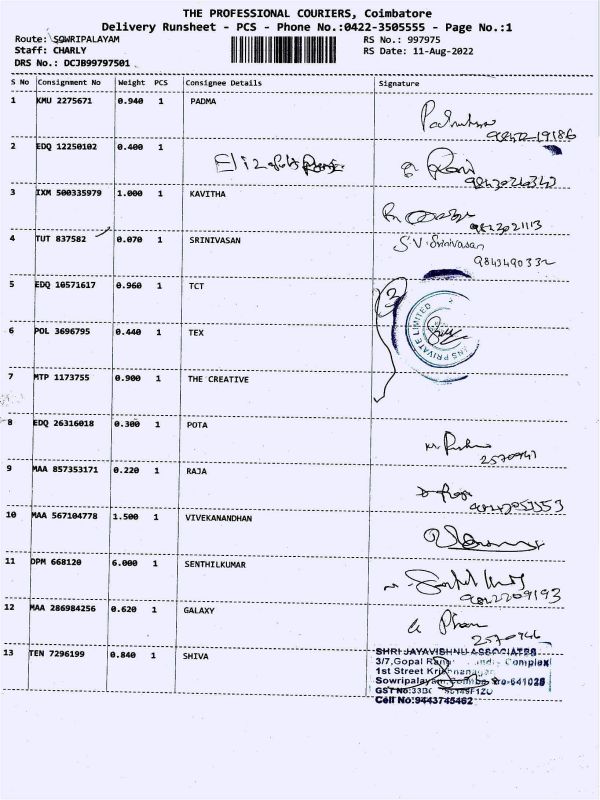 THE PROFESSIONAL COURIERS, Coimbatore
Delivery Runsheet - PCS - Phone No.:0422-3505555 - Page No.:1
Route: SOWRIPALAYAM
RS No.: 997975
Staff: CHARLY
RS Date: 11-Aug-2022
DRS No.: DCJB99797501
S No Consignment No Weight PCS Consignee Details Signature
1 KMU 2275671 0.940 1 PADMA
2 EDQ 12250102 0.400 1
3 IXM 500335979 1.000 1 KAVITHA
4 TUT 837582 0.070 1 SRINIVASAN S.V. Srinivasan
9843490332
5 EDQ 10571617 0.960 1 TCT
PRIVATE LIMITED
6 POL 3696795 0.440 1 TEX
7 MTP 1173755 0.900 1 THE CREATIVE
8 EDQ 26316018 0.300 1 POTA
9 MAA 857353171 0.220 1 RAJA
10 MAA 567104778 1.500 1 VIVEKANANDHAN
11 DPM 668120 6.000 1 SENTHILKUMAR
9842209193
12 MAA 286984256 0.620 1 GALAXY
2570946
13 TEN 7296199 0.840 1 SHIVA
SHRI JAYAVISHNU ASSOCIATES
3/7,Gopal Complex
1st Street Krishnanagar
Sowripalayam, Coimbatore-641028
GST No:33B
Cell No:9443745462